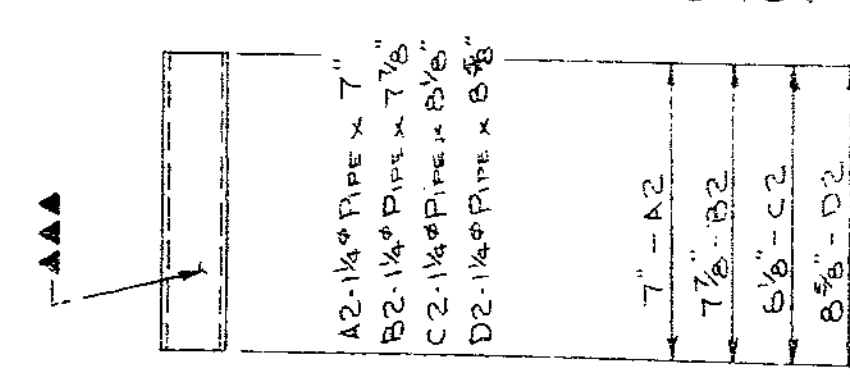 A2-1¼ø PIPE x 7"
B2-1¼ø PIPE x 7⅞"
C2-1¼ø PIPE x 8⅛"
D2-1¼ø PIPE x 8⅝"
7" - A2
7⅞" - B2
8⅛" - C2
8⅝" - D2